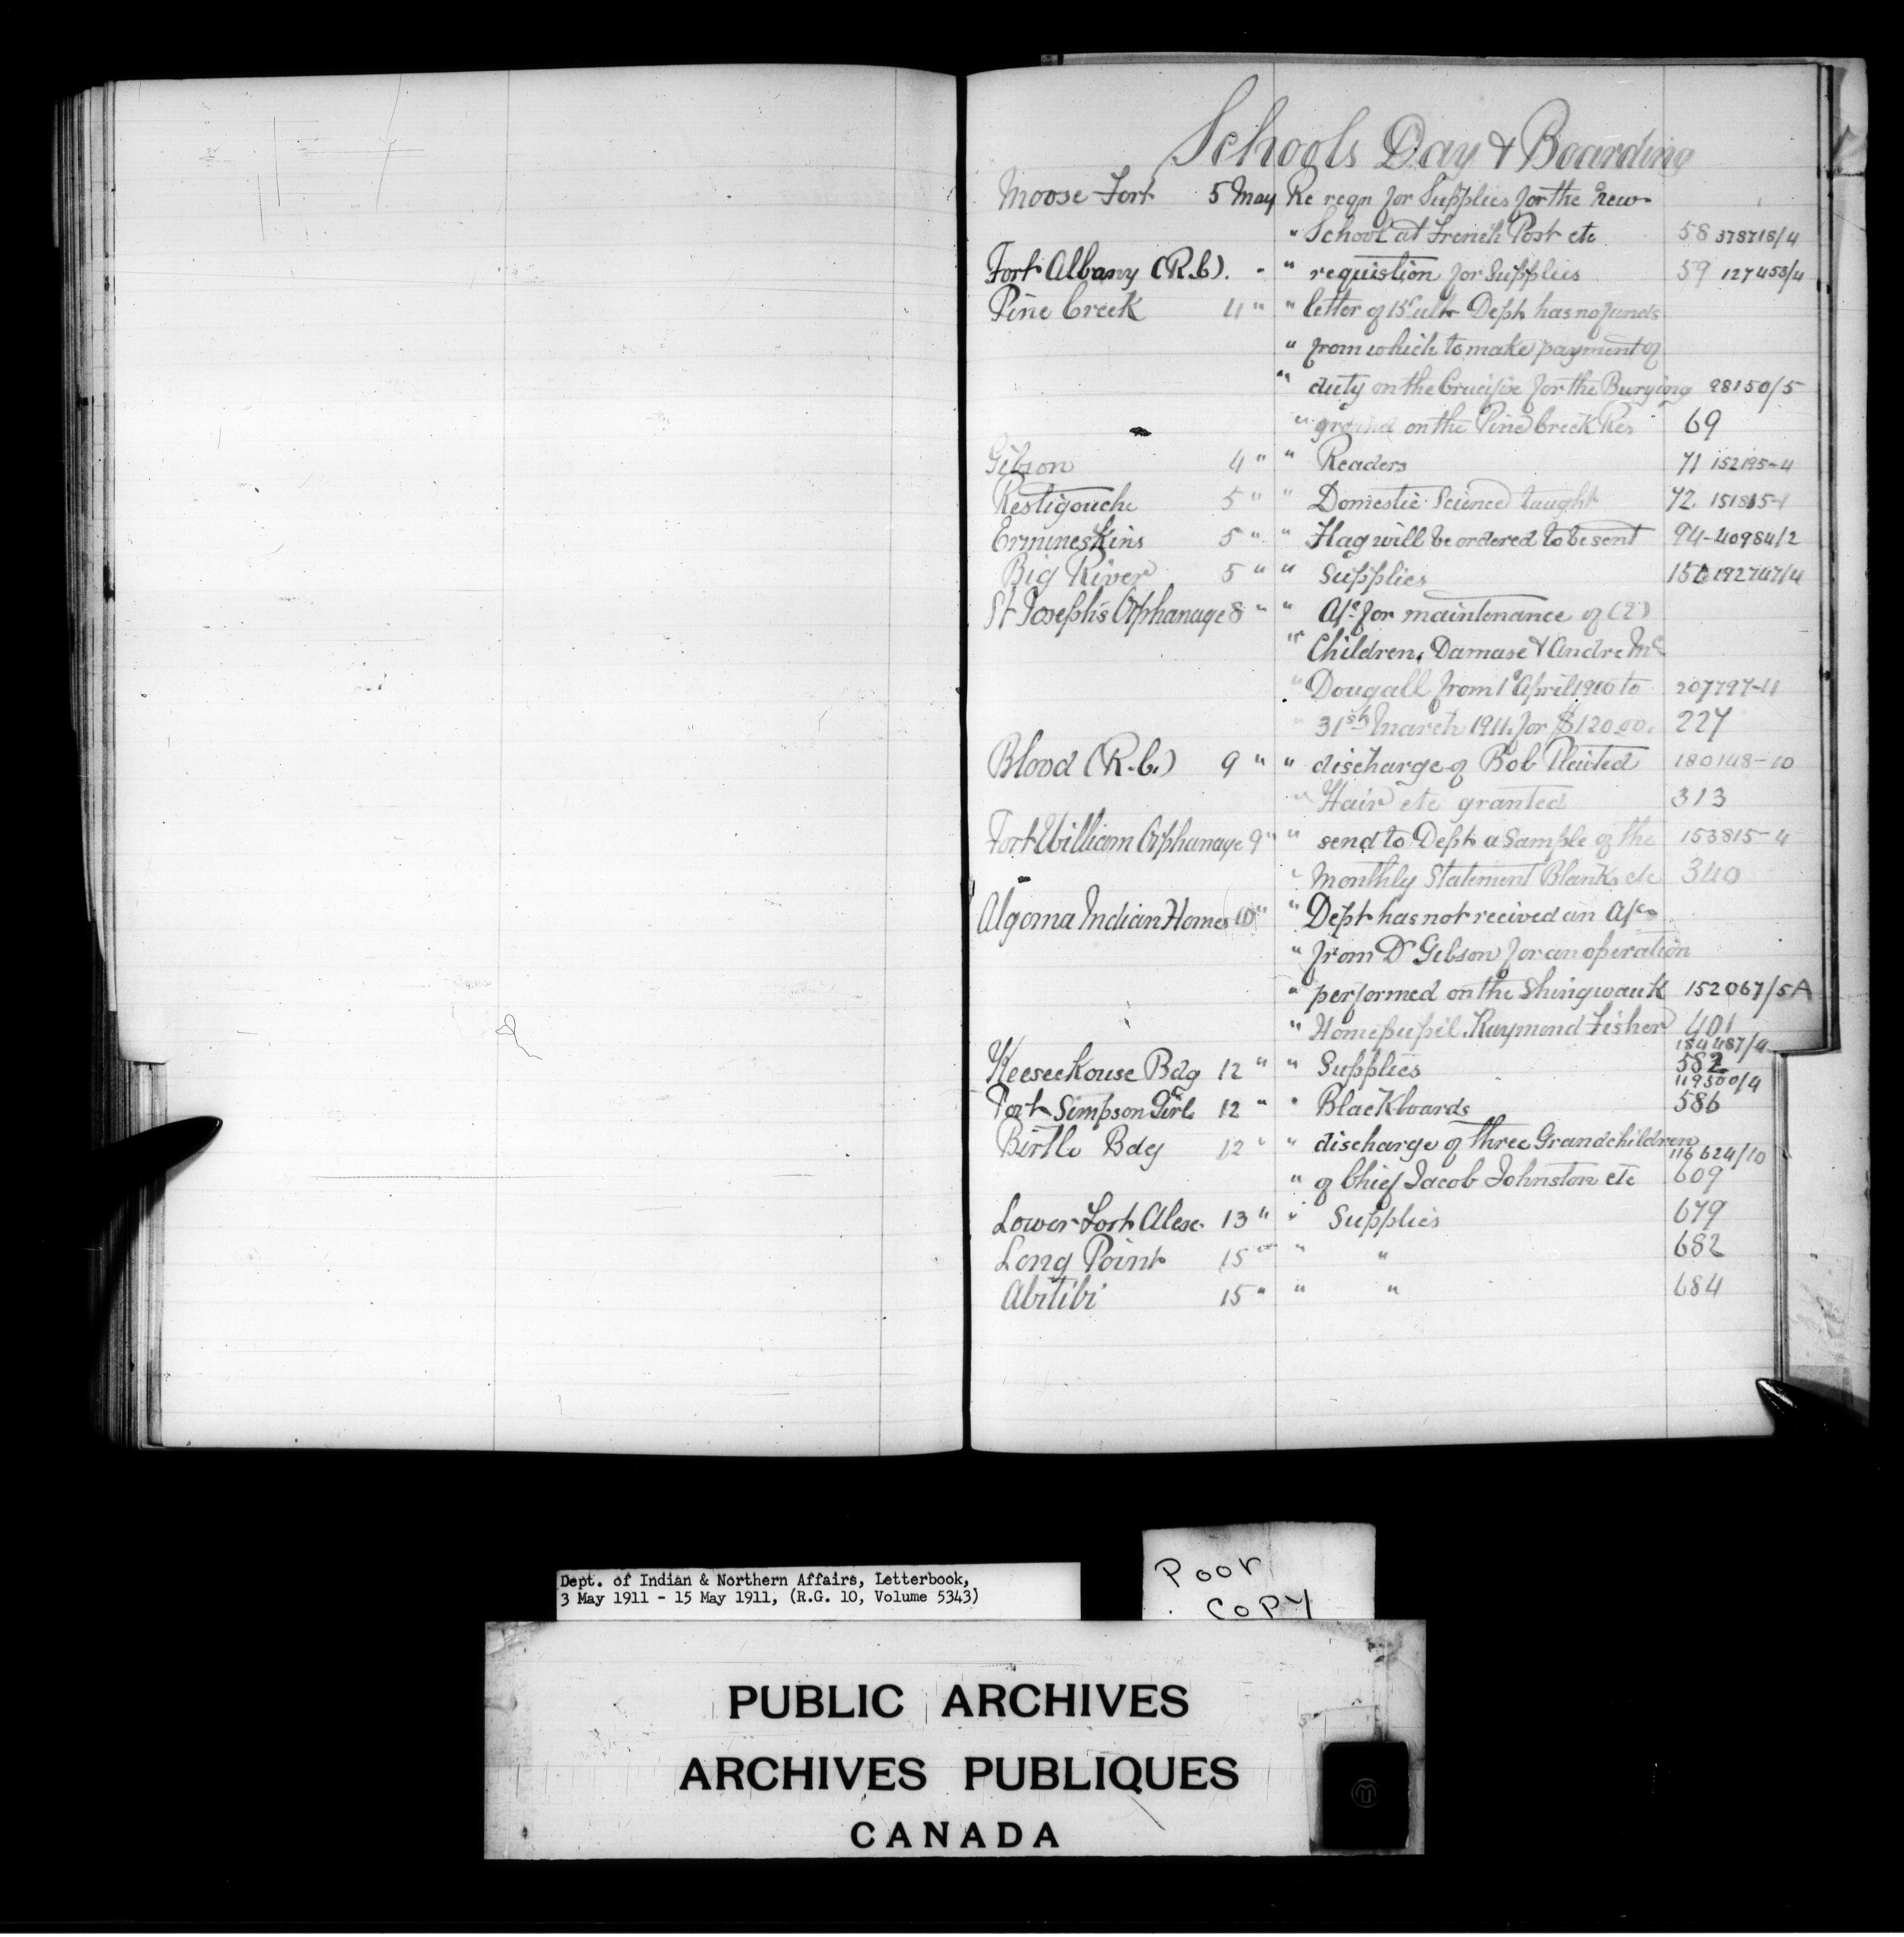 Schools Day & Boarding
Moose Fort 5 May Re reqn for Supplies for the new
" School at French Post etc 58 378718/4
Fort Albany (R.C.). " " requistion for Supplies 59 127453/4
Pine Creek 4 " " letter of 15 ult Dept has no funds
" from which to make payment of
" duty on the Crucifix for the Burying 98150/5
" ground on the Pine Creek Res 69
Gibson 4 " " Readers 71 152195-4
Restigouche 5 " " Domestic Science taught 72. 151815-1
Ermineskins 5 " " Flag will be ordered to be sent 94-40984/2
Big River 5 " " Supplies 192747/4
St Joseph's Orphanage 8 " " A/c for maintenance of (2)
" Children, Damase & Andre Mc
" Dougall from 1st April 1910 to 207797-11
" 31st March 1911, for $120.00. 227
Blood (R.C.) 9 " " discharge of Bob Plaited 180148-10
" Hair etc granted 313
Fort William Orphanage 9 " " send to Dept a Sample of the 153815-4
" Monthly Statement Blanks etc 340
Algoma Indian Homes 10 " " Dept has not recived an A/c
" from Dr Gibson for an operation
" performed on the Shingwauk 152067/5A
" Home pupil, Raymond Fisher 401
184487/4
Keeseekouse Bdg 12 " " Supplies 582
119500/4
Port Simpson Girls 12 " " Blackboards 586
Birtle Bdg 12 " " discharge of three Grandchildren
116624/10
" of Chief Jacob Johnston etc 609
Lower Fort Alex. 13 " " Supplies 679
Long Point 15 " " " 682
Abitibi 15 " " " 684
Dept. of Indian & Northern Affairs, Letterbook,
3 May 1911 - 15 May 1911, (R.G. 10, Volume 5343)
Poor
Copy
PUBLIC ARCHIVES
ARCHIVES PUBLIQUES
CANADA